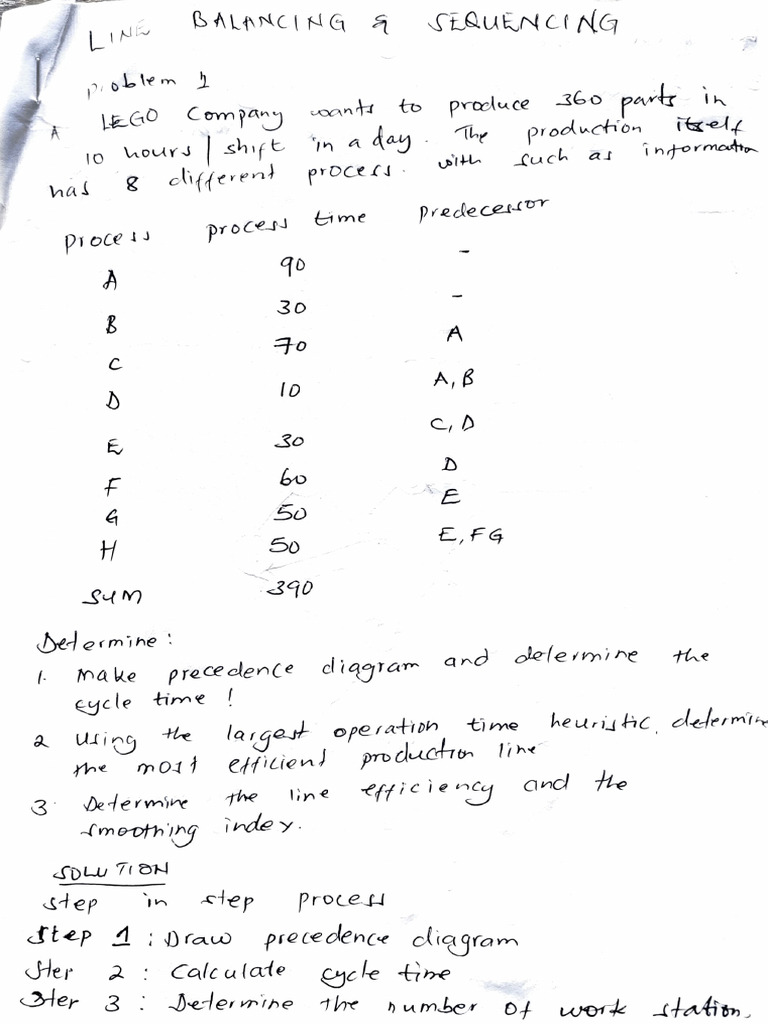 LINE BALANCING & SEQUENCING
problem 1
A LEGO Company wants to produce 360 parts in
10 hours / shift in a day. The production itself
has 8 different process. with such as information
process process time predecessor
A 90 -
B 30 -
C 70 A
D 10 A, B
E 30 C, D
F 60 D
G 50 E
H 50 E, F G
SUM 390
Determine:
1. Make precedence diagram and determine the
cycle time !
2 Using the largest operation time heuristic, determine
the most efficient production line
3 Determine the line efficiency and the
smoothing index.
SOLUTION
step in step process
Step 1 : Draw precedence diagram
Ster 2 : Calculate cycle time
Ster 3 : Determine the number of work station.